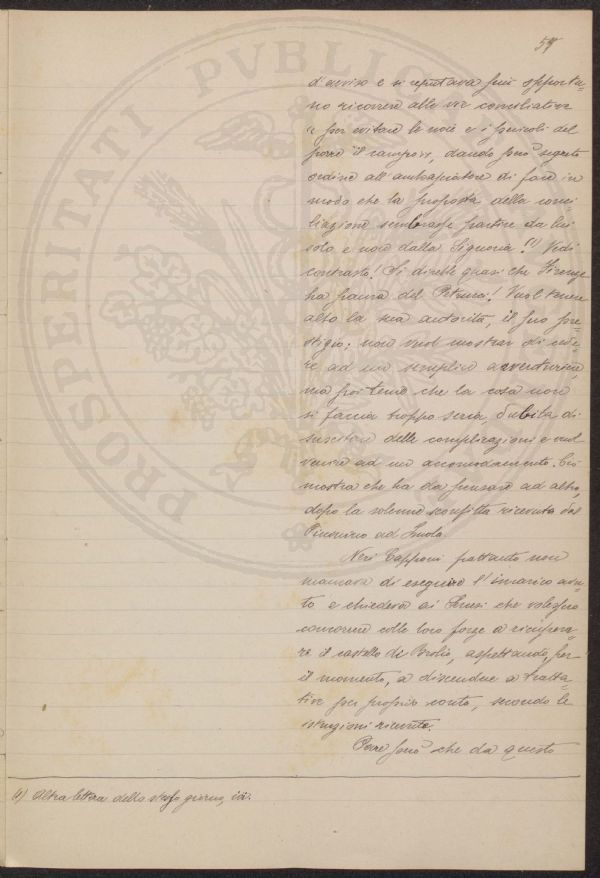 57
d'avviso e si reputava più opportu=
no ricorrere alle vie conciliative
e per evitare le noie e i pericoli del
porre il campo ivi, dando però segreto
ordine all'ambasciatore di fare in
modo che la proposta della conci
liazione sembrasse partire da lui
solo e non dalla Signoria (1) Vedi
contrasto! Si direbbe quasi che Firenze
ha paura del Petrucci! Vuol tenere
alto la sua autorità, il suo pre=
stigio; non vuol mostrar di cede=
re ad un semplice avventuriero,
ma poi teme che la cosa non
si faccia troppo seria, dubita di
suscitare delle complicazioni e vuol
venire ad un accomodamento. Ciò
mostra che ha da pensare ad altro,
dopo la solenne sconfitta ricevuta dal
Piccinino ad Imola.
Neri Capponi frattanto non
mancava di eseguire l'incarico avu=
to e chiedeva ai Senesi che volessero
concorrere colle loro forze a ricupera=
re il castello di Brolio, aspettando, per
il momento, a discendere a tratta=
tive per proprio conto, secondo le
istruzioni ricevute.
Pare però che da questo
(1) Altra lettera dello stesso giorno, ivi.
PROSPERITATI PVBLICAE